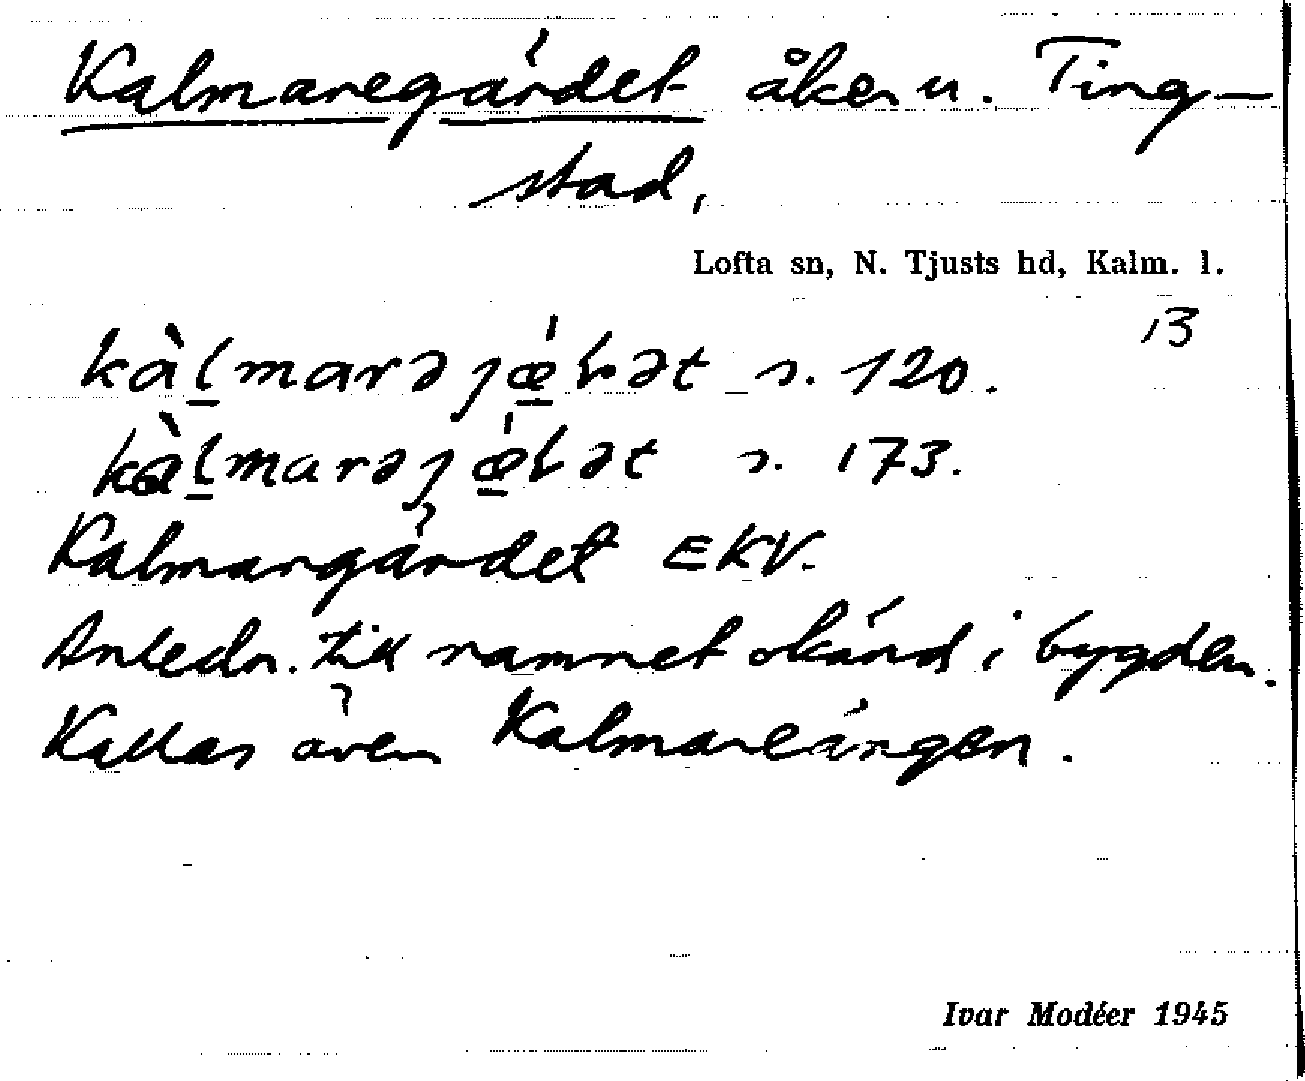 Kalmaregärdet åker u. Ting-
stad,
Lofta sn, N. Tjusts hd, Kalm. l.
13
kàl̠marəjǽ̠ɫət s. 120.
kàl̠marəjǽ̠ɫət s. 173.
Kalmargärdet EKV.
Anledn. till namnet okänd i bygden.
Kallas även Kalmareängen.
Ivar Modéer 1945